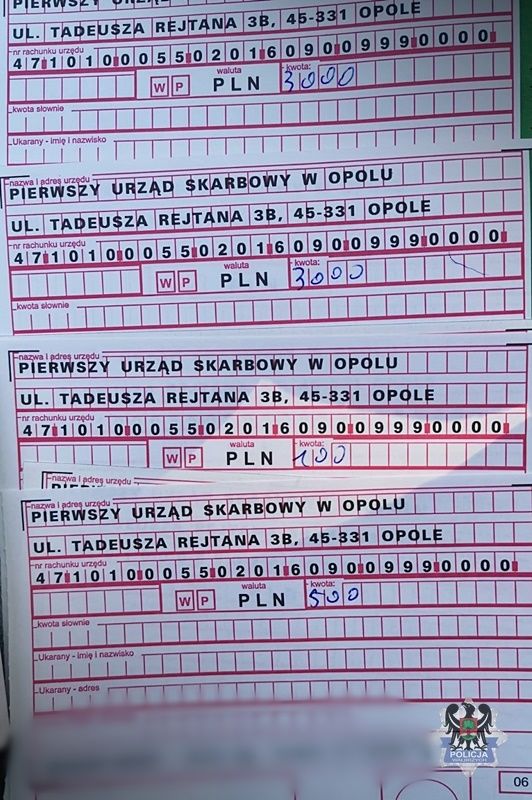 PIERWSZY URZĄD
UL. TADEUSZA REJTANA 3B, 45-331 OPOLE
nr rachunku urzędu
47 1010 0055 0201 6090 0999 0000
waluta
kwota:
WP PLN 3000
kwota słownie
Ukarany - imię i nazwisko
nazwa i adres urzędu
PIERWSZY URZĄD SKARBOWY W OPOLU
UL. TADEUSZA REJTANA 3B, 45-331 OPOLE
nr rachunku urzędu
47 1010 0055 0201 6090 0999 0000
waluta
kwota:
WP PLN 3000
kwota słownie
nazwa i adres urzędu
PIERWSZY URZĄD SKARBOWY W OPOLU
UL. TADEUSZA REJTANA 3B, 45-331 OPOLE
nr rachunku urzędu
47 1010 0055 0201 6090 0999 0000
waluta
kwota:
WP PLN 100
nazwa i adres urzędu
nazwa i adres urzędu
PIERWSZY URZĄD SKARBOWY W OPOLU
UL. TADEUSZA REJTANA 3B, 45-331 OPOLE
nr rachunku urzędu
47 1010 0055 0201 6090 0999 0000
waluta
kwota:
WP PLN 500
kwota słownie
Ukarany - imię i nazwisko
Ukarany - adres
POLICJA
WAŁBRZYCH
06